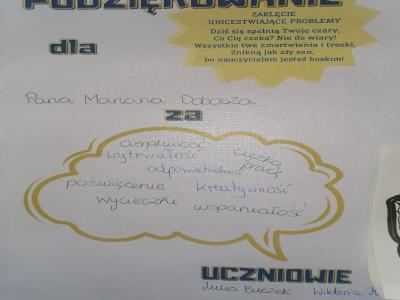 PODZIĘKOWANIE
ZAKLĘCIE
UNICESTWIAJĄCE PROBLEMY
Dziś się spełnią Twoje czary,
Co Cię czeka? Nie do wiary!
Wszystkie twe zmartwienia i troski,
Znikną jak zły sen,
bo nauczycielem jesteś boskim!
dla
Pana Mariana Dobosza
za
cierpliwość
ciężką
pracę
wytrwałość
odpowiedzialność
poświęcenie kreatywność
wycieczki wspaniałość
UCZNIOWIE
Julia Buczek Wiktoria